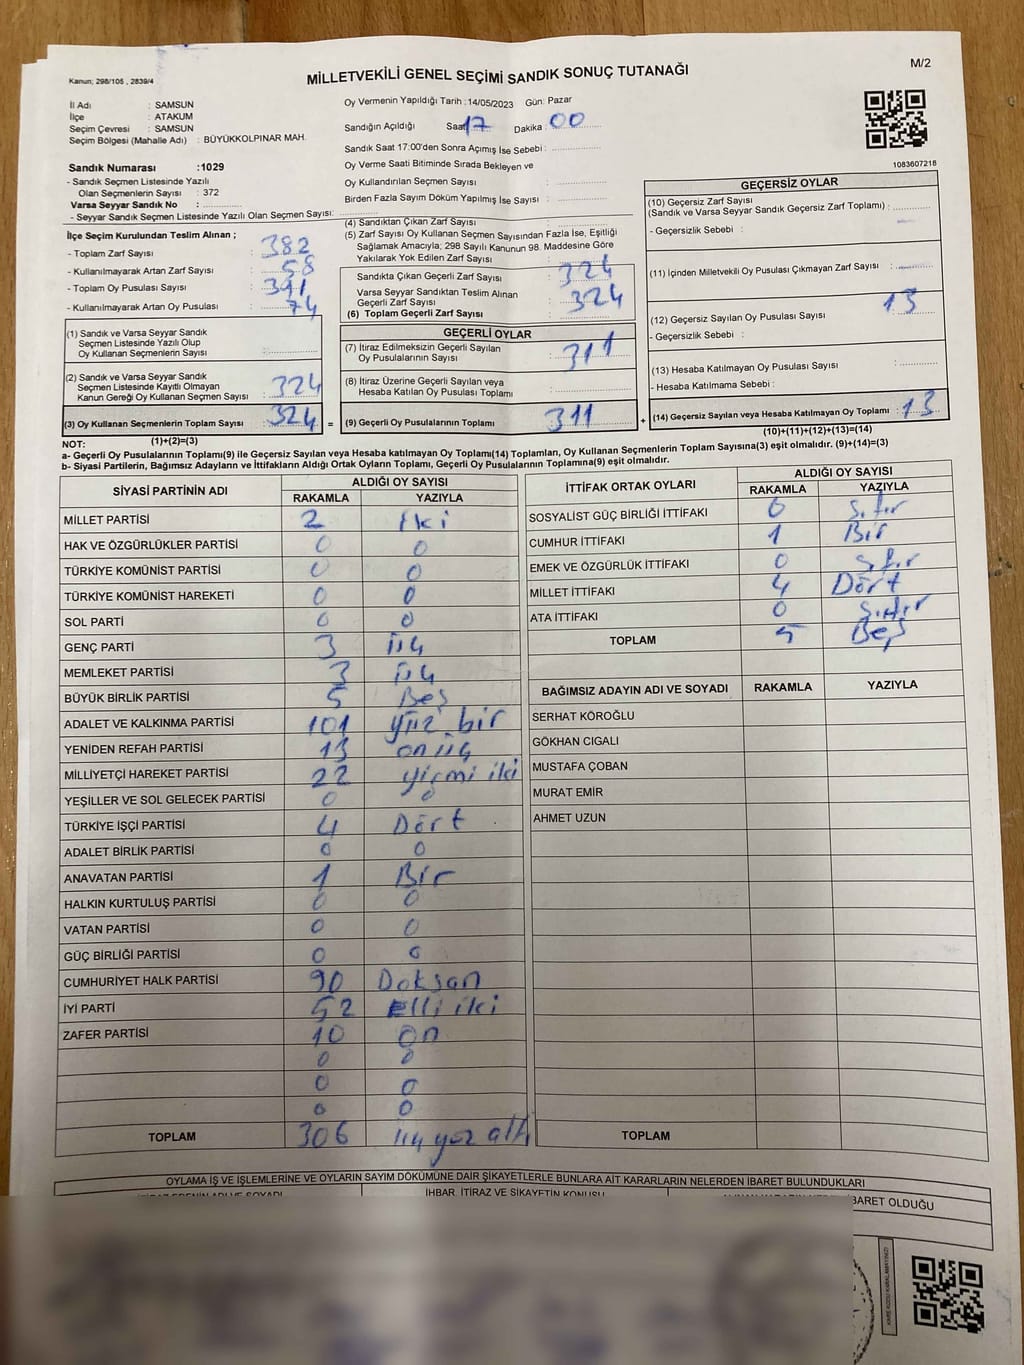 Kanun; 298/105 , 2839/4
MİLLETVEKİLİ GENEL SEÇİMİ SANDIK SONUÇ TUTANAĞI
M/2
İl Adı : SAMSUN
İlçe : ATAKUM
Seçim Çevresi : SAMSUN
Seçim Bölgesi (Mahalle Adı) : BÜYÜKKOLPINAR MAH.
Sandık Numarası :1029
- Sandık Seçmen Listesinde Yazılı
Olan Seçmenlerin Sayısı : 372
Varsa Seyyar Sandık No :
- Seyyar Sandık Seçmen Listesinde Yazılı Olan Seçmen Sayısı:
Oy Vermenin Yapıldığı Tarih :14/05/2023 Gün: Pazar
Sandığın Açıldığı Saat 17 Dakika : 00
Sandık Saat 17:00'den Sonra Açımış İse Sebebi :
Oy Verme Saati Bitiminde Sırada Bekleyen ve
Oy Kullandırılan Seçmen Sayısı :
Birden Fazla Sayım Döküm Yapılmış İse Sayısı :
1083607218
İlçe Seçim Kurulundan Teslim Alınan ;
- Toplam Zarf Sayısı : 382
- Kullanılmayarak Artan Zarf Sayısı : 58
- Toplam Oy Pusulası Sayısı : 391
- Kullanılmayarak Artan Oy Pusulası : 74
(1) Sandık ve Varsa Seyyar Sandık
Seçmen Listesinde Yazılı Olup
Oy Kullanan Seçmenlerin Sayısı :
(2) Sandık ve Varsa Seyyar Sandık
Seçmen Listesinde Kayıtlı Olmayan
Kanun Gereği Oy Kullanan Seçmen Sayısı : 324
(3) Oy Kullanan Seçmenlerin Toplam Sayısı : 324 =
(1)+(2)=(3)
(4) Sandıktan Çıkan Zarf Sayısı :
(5) Zarf Sayısı Oy Kullanan Seçmen Sayısından Fazla İse, Eşitliği
Sağlamak Amacıyla; 298 Sayılı Kanunun 98. Maddesine Göre
Yakılarak Yok Edilen Zarf Sayısı :
Sandıkta Çıkan Geçerli Zarf Sayısı : 324
Varsa Seyyar Sandıktan Teslim Alınan
Geçerli Zarf Sayısı : 324
(6) Toplam Geçerli Zarf Sayısı :
GEÇERLİ OYLAR
(7) İtiraz Edilmeksizin Geçerli Sayılan
Oy Pusulalarının Sayısı : 311
(8) İtiraz Üzerine Geçerli Sayılan veya
Hesaba Katılan Oy Pusulası Toplamı :
(9) Geçerli Oy Pusulalarının Toplamı : 311 +
GEÇERSİZ OYLAR
(10) Geçersiz Zarf Sayısı
(Sandık ve Varsa Seyyar Sandık Geçersiz Zarf Toplamı) :
- Geçersizlik Sebebi :
(11) İçinden Milletvekili Oy Pusulası Çıkmayan Zarf Sayısı :
(12) Geçersiz Sayılan Oy Pusulası Sayısı : 13
- Geçersizlik Sebebi :
(13) Hesaba Katılmayan Oy Pusulası Sayısı :
- Hesaba Katılmama Sebebi :
(14) Geçersiz Sayılan veya Hesaba Katılmayan Oy Toplamı : 13
(10)+(11)+(12)+(13)=(14)
NOT:
a- Geçerli Oy Pusulalarının Toplamı(9) ile Geçersiz Sayılan veya Hesaba katılmayan Oy Toplamı(14) Toplamları, Oy Kullanan Seçmenlerin Toplam Sayısına(3) eşit olmalıdır. (9)+(14)=(3)
b- Siyasi Partilerin, Bağımsız Adayların ve İttifakların Aldığı Ortak Oyların Toplamı, Geçerli Oy Pusulalarının Toplamına(9) eşit olmalıdır.
SİYASİ PARTİNİN ADI ALDIĞI OY SAYISI
RAKAMLA YAZIYLA
MİLLET PARTİSİ 2 iki
HAK VE ÖZGÜRLÜKLER PARTİSİ 0 0
TÜRKİYE KOMÜNİST PARTİSİ 0 0
TÜRKİYE KOMÜNİST HAREKETİ 0 0
SOL PARTİ 0 0
GENÇ PARTİ 3 üç
MEMLEKET PARTİSİ 3 üç
BÜYÜK BİRLİK PARTİSİ 5 Beş
ADALET VE KALKINMA PARTİSİ 101 yüz bir
YENİDEN REFAH PARTİSİ 13 onüç
MİLLİYETÇİ HAREKET PARTİSİ 22 yirmi iki
YEŞİLLER VE SOL GELECEK PARTİSİ 0 0
TÜRKİYE İŞÇİ PARTİSİ 4 Dört
ADALET BİRLİK PARTİSİ 0 0
ANAVATAN PARTİSİ 1 Bir
HALKIN KURTULUŞ PARTİSİ 0 0
VATAN PARTİSİ 0 0
GÜÇ BİRLİĞİ PARTİSİ 0 0
CUMHURİYET HALK PARTİSİ 90 Doksan
İYİ PARTİ 52 Elli iki
ZAFER PARTİSİ 10 on
0 0
0 0
0 0
TOPLAM 306 üç yüz altı
İTTİFAK ORTAK OYLARI ALDIĞI OY SAYISI
RAKAMLA YAZIYLA
SOSYALİST GÜÇ BİRLİĞİ İTTİFAKI 0 Sıfır
CUMHUR İTTİFAKI 1 Bir
EMEK VE ÖZGÜRLÜK İTTİFAKI 0 Sıfır
MİLLET İTTİFAKI 4 Dört
ATA İTTİFAKI 0 Sıfır
TOPLAM 5 Beş
BAĞIMSIZ ADAYIN ADI VE SOYADI RAKAMLA YAZIYLA
SERHAT KÖROĞLU
GÖKHAN CIGALI
MUSTAFA ÇOBAN
MURAT EMİR
AHMET UZUN
TOPLAM
OYLAMA İŞ VE İŞLEMLERİNE VE OYLARIN SAYIM DÖKÜMÜNE DAİR ŞİKAYETLERLE BUNLARA AİT KARARLARIN NELERDEN İBARET BULUNDUKLARI
İHBAR, İTİRAZ VE ŞİKAYETİN KONUSU
İBARET OLDUĞU